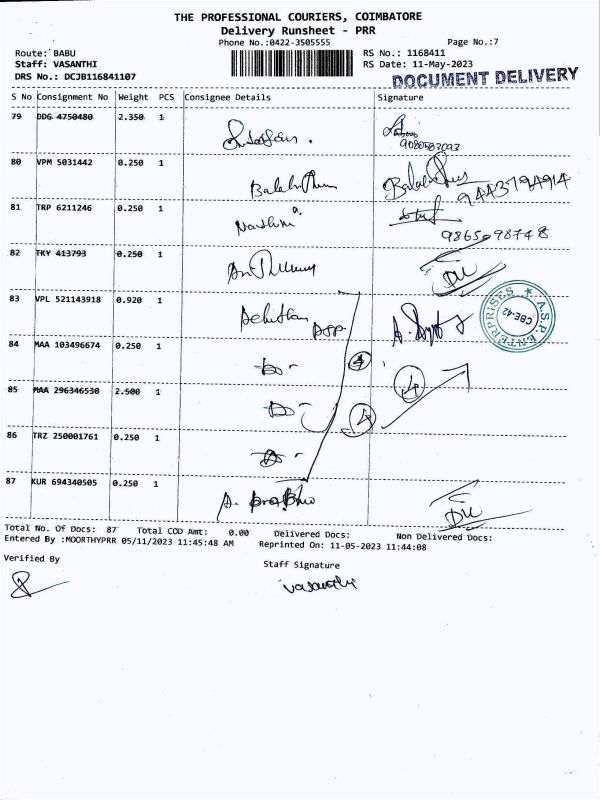 THE PROFESSIONAL COURIERS, COIMBATORE
Delivery Runsheet - PRR
Phone No.:0422-3505555 Page No.:7
Route: BABU RS No.: 1168411
Staff: VASANTHI RS Date: 11-May-2023
DRS No.: DCJB116841107 DOCUMENT DELIVERY
S No Consignment No Weight PCS Consignee Details Signature
79 DDG 4750480 2.350 1
9080503093
80 VPM 5031442 0.250 1
9443794914
81 TRP 6211246 0.250 1
9865098748
82 TKY 413793 0.250 1
83 VPL 521143918 0.920 1
A.S.P. ENTERPRISES ★ CBE-42
84 MAA 103496674 0.250 1
4
4
85 MAA 296346530 2.500 1
4
86 TRZ 250001761 0.250 1
87 KUR 694340505 0.250 1
Total No. Of Docs: 87 Total COD Amt: 0.00 Delivered Docs: Non Delivered Docs:
Entered By :MOORTHYPRR 05/11/2023 11:45:48 AM Reprinted On: 11-05-2023 11:44:08
Verified By Staff Signature
vasanthi